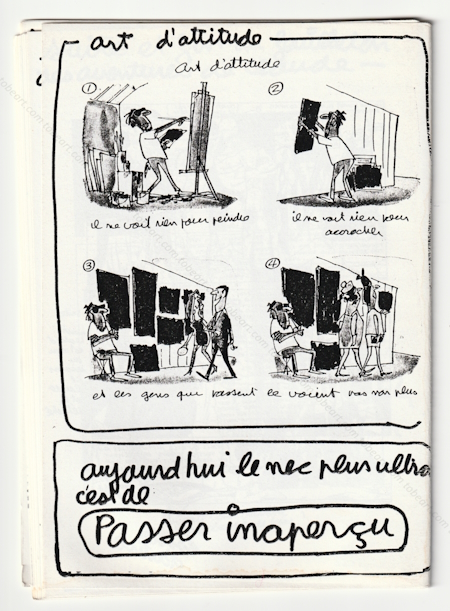 art d'attitude
art d'attitude
1
2
il ne voit rien pour peindre
il ne voit rien pour
accrocher
3
4
et les gens qui passent le voient pas non plus
aujourd'hui le nec plus ultra
c'est de
Passer inaperçu